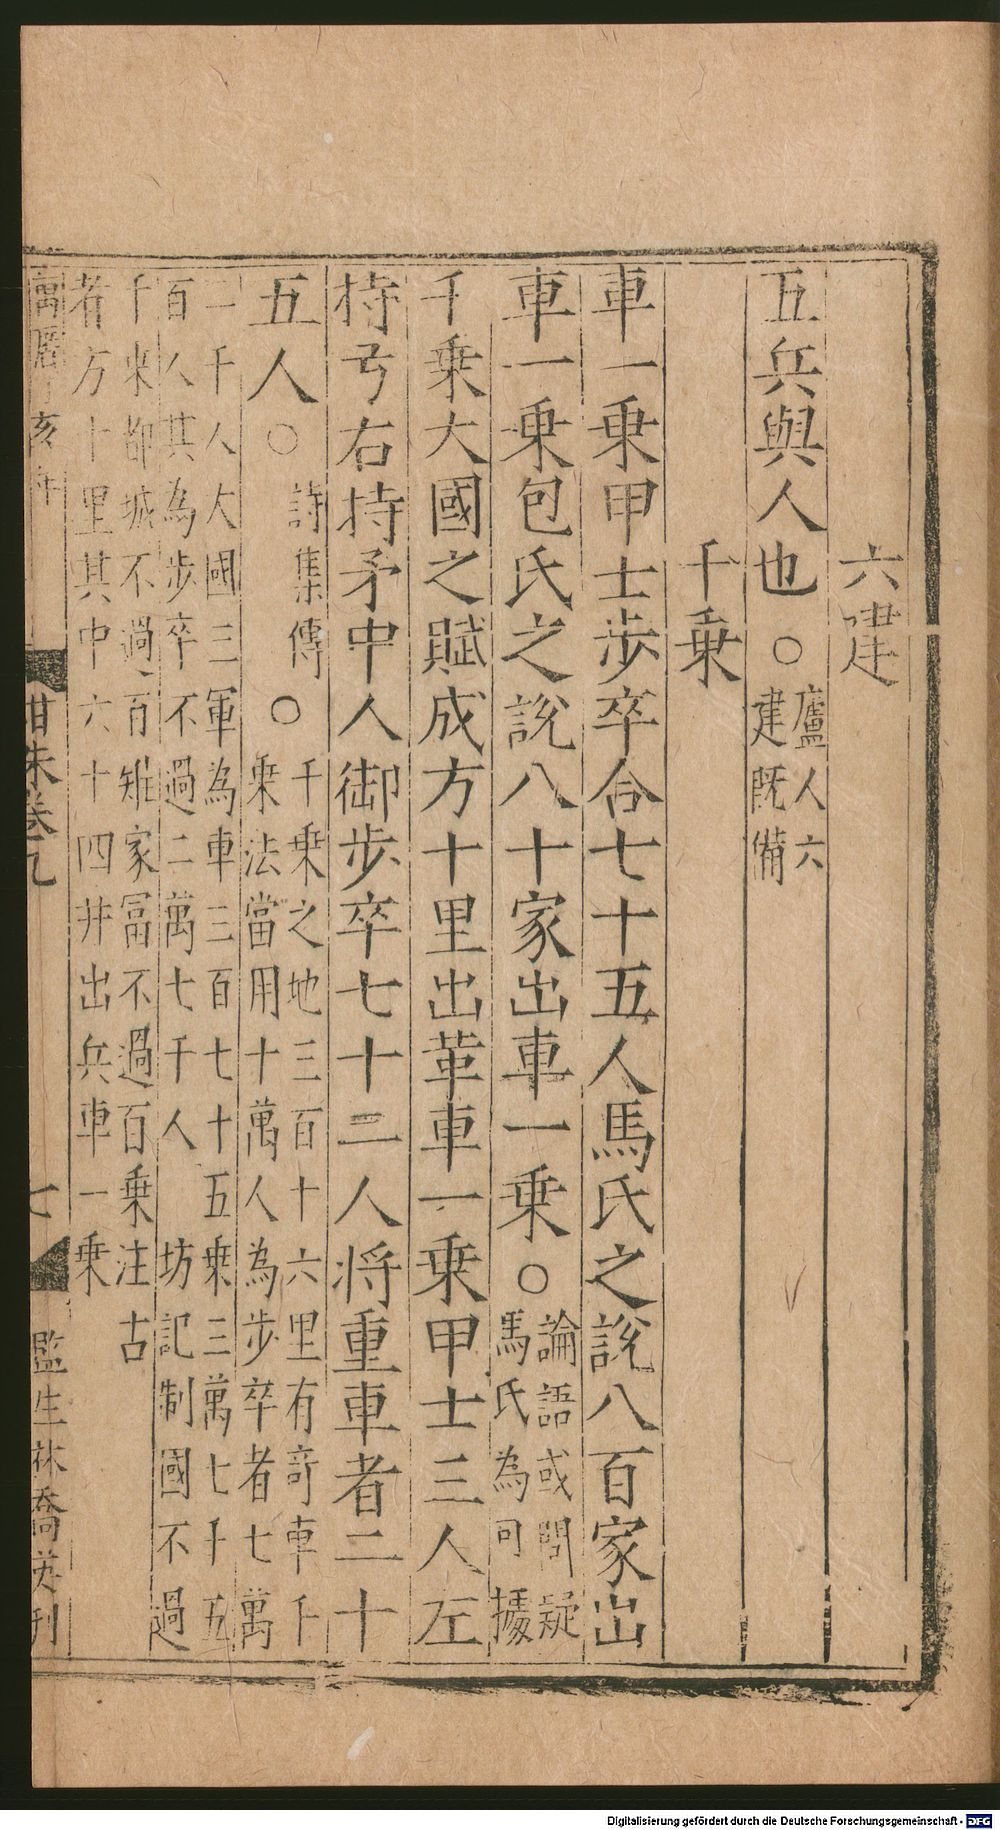 六建
五兵與人也○廬人六
建既備
千乗
車一乗甲士步卒合七十五人馬氏之說八百家出
車一乗包氏之說八十家出車一乗○論語或問疑
馬氏為可據
千乗大國之賦成方十里出革車一乗甲士三人左
持弓右持矛中人御步卒七十二人将重車者二十
五人○詩集傳○千乗之地三百十六里有竒車千
乗法當用十萬人為步卒者七萬
二千人大國三軍為車三百七十五乗三萬七千五
百人其為步卒不過二萬七千人 坊記制國不過
千乗都城不過百雉家冨不過百乗注古
者方十里其中六十四井出兵車一乗
萬曆丁亥年 紺珠卷九 七 監生林喬英刊
Digitalisierung gefördert durch die Deutsche Forschungsgemeinschaft - DFG